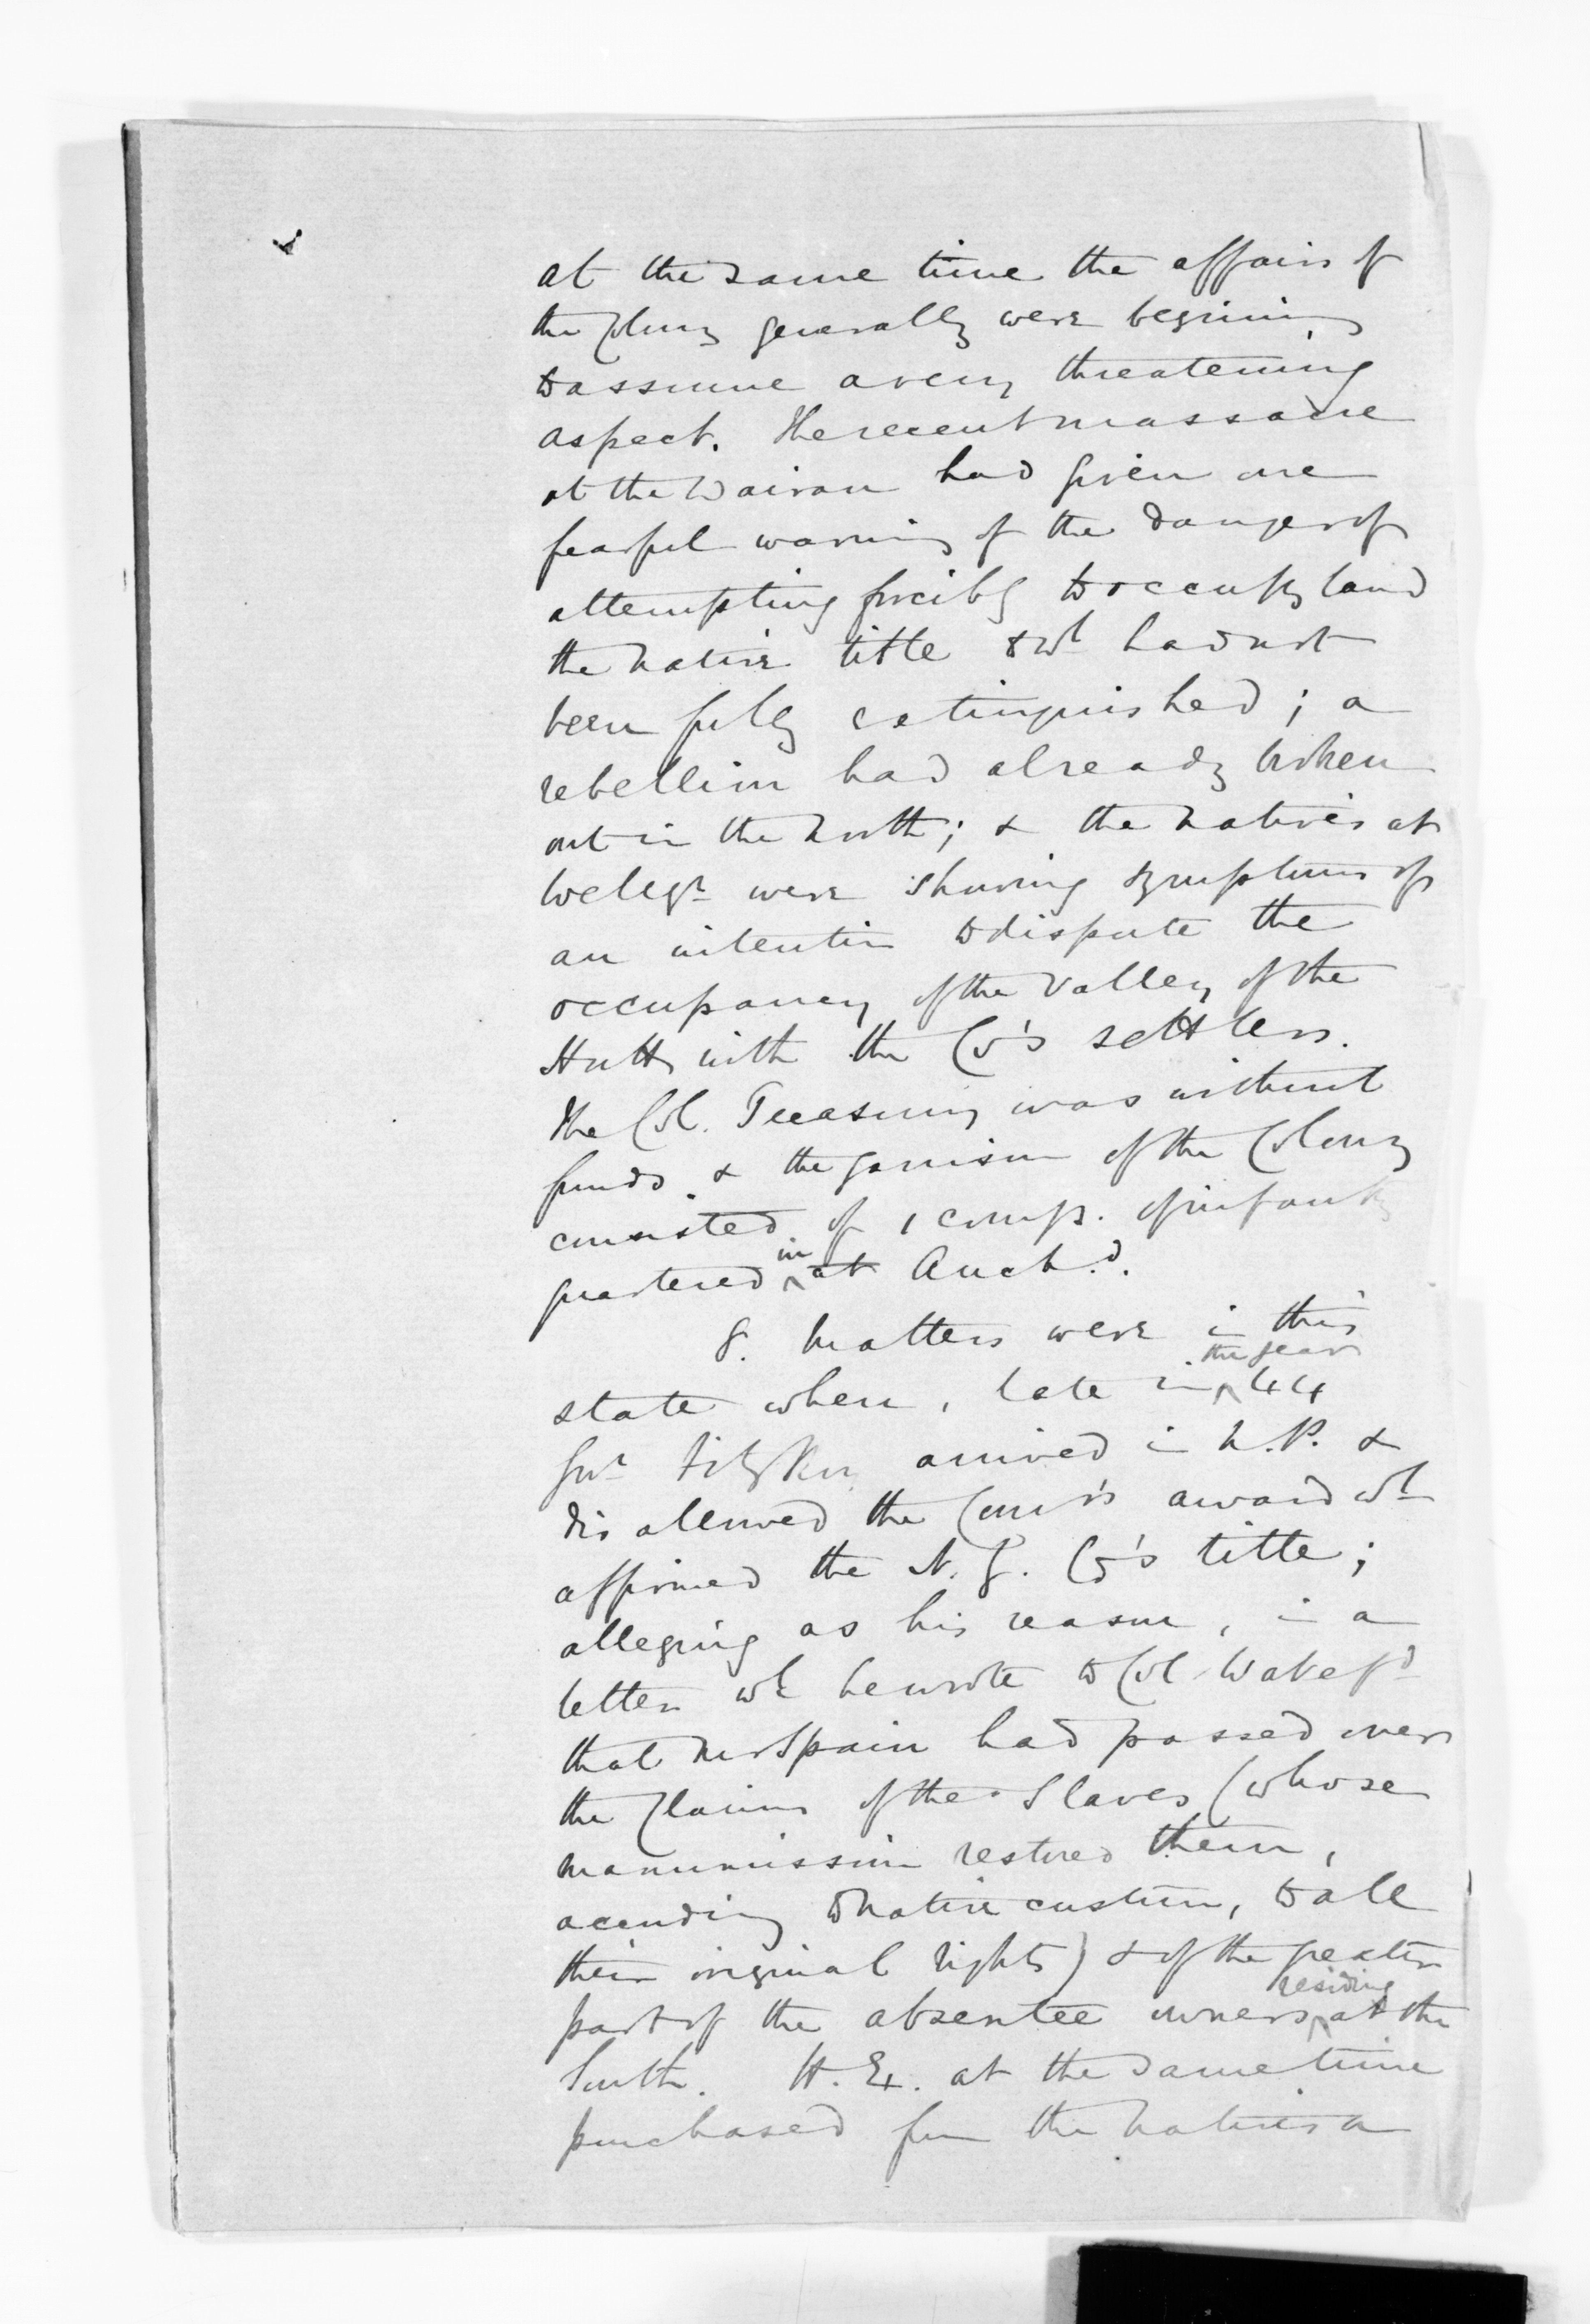 at the same time the affairs of
the Colony generally were beginning
to assume a very threatening
aspect. The recent massacre
at the Wairau had given one
fearful warning of the danger of
attempting forcibly to occupy land
the native title to wh had not
been fully extinguished; a
rebellion had already broken
out in the North; & the natives at
Wellgn were showing symptoms of
an intention to dispute the
occupancy of the Valley of the
Hutt with the Co's settlers.
The Col. Treasury was without
funds & the garrison of the Colony
consisted of 1 comp. of infantry
quartered in at Auckd.
8. Matters were in this
state when, late in the year 44
Govr FitzRoy arrived in N.P. &
disallowed the Commr's award wh
affirmed the N.Z. Co's title;
alleging as his reason, in a
letter wh he wrote to Col Wakefd
that Mr Spain had passed over
the Claims of the Slaves (whose
manumission restored them,
according to native custom, to all
their original rights) & of the greater
part of the absentee owners residing at the
South. H.E. at the same time
purchased from the natives a